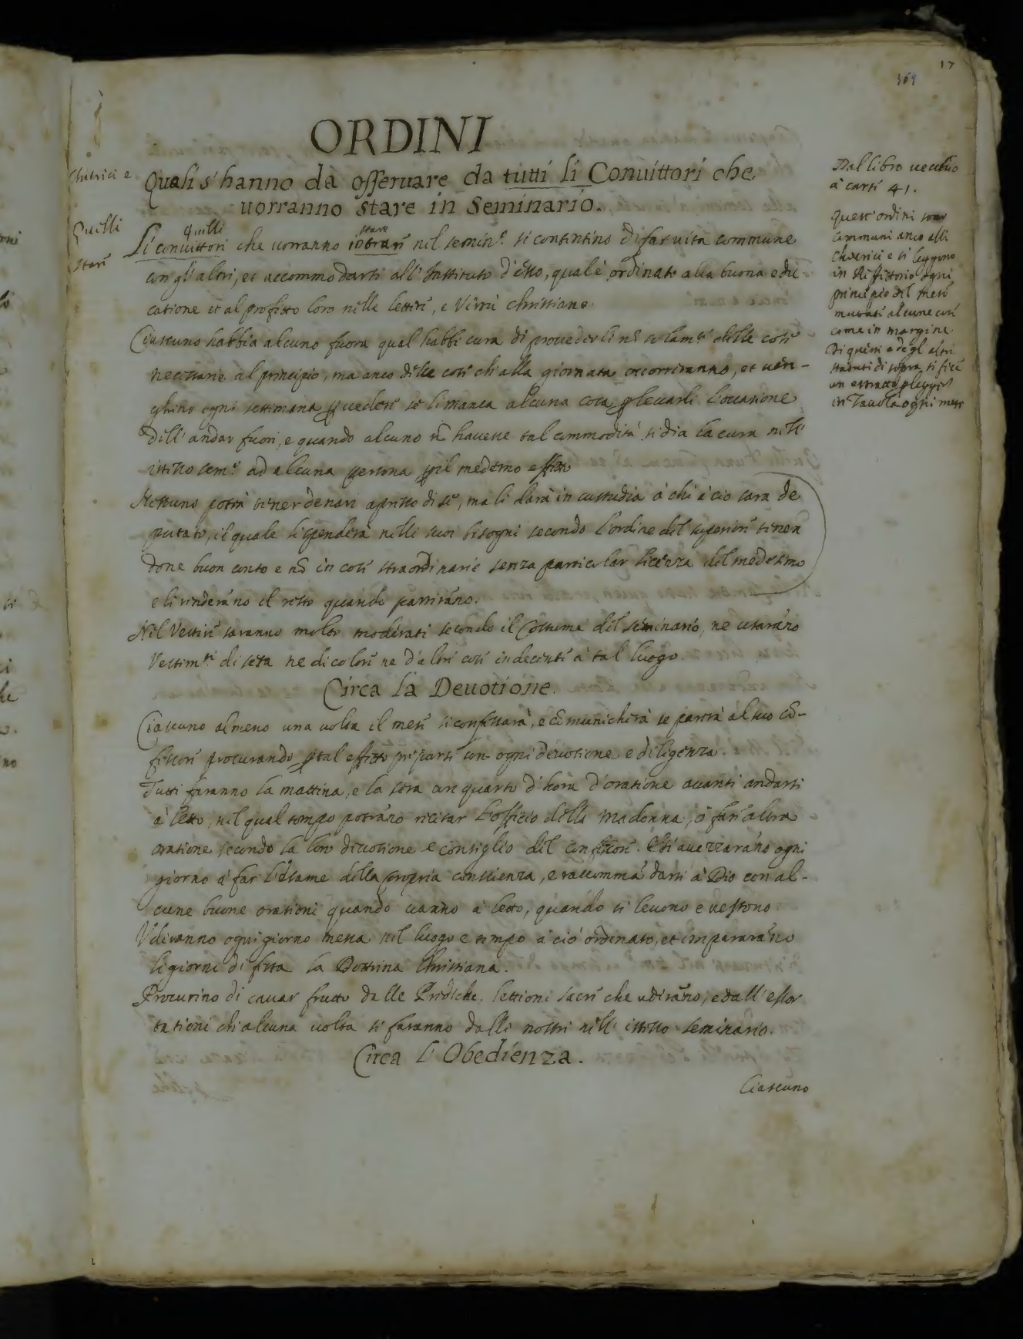 17
369
ORDINI
Quali s'hanno dà osseruare da tutti li Conuittori che
uorranno stare in Seminario.
Chierici e
Quelli
stare
quelli
stare
Li conuittori che uorranno intrare nel semin.º si contentino di far uita commune
con gl'altri, et accommodarsi all'Instituto d'esso, qual è ordinato alla buona edu-
catione et al profitto loro nelle lettere, e Virtù christiane
Ciascuno habbia alcuno fuora qual habbi cura di prouederli nõ solam.te delle cose
necessarie al principio, ma anco delle cose ch'alla giornata occorreranno, et ueri-
ghino ogni settimana p ueder se li manca alcuna cosa p leuarli l'occasione
dell'andar fuori, e quando alcuno nõ hauesse tal commodità si dia la cura nell'
istesso sem.º ad alcuna persona p il medemo effetto
Nessuno potrà tener denari apresso di se, ma li darà in custudia à chi à ciò sara de
putato, il quale li spenderà nelli suoi bisogni secondo l'ordine del superiore tenen
done buon conto e nõ in cose straordinarie senza particolar licenza del medesmo
e li renderãno il resto quando partirãno.
Nel Vestire saranno molto moderati secondo il Costume del seminario, ne usarãno
Vestim.ti di seta ne di colore ne d'altre cose indecenti à tal luogo.
Circa la Deuotione.
Ciascuno almeno una uolta il mese si confessarà, e cõmunicherà se parrà al suo cõ-
fessore procurando p tal effetto prepararsi con ogni deuotione e diligenza.
Tutti faranno la mattina, e la sera un quarto d'hora d'oratione auanti andarsi
à letto, nel qual tempo potrãno recitar l'officio della madonna, ò fare altra
oratione secondo la loro diuotione e consiglio del confessore. E si auezzarãno ogni
giorno à far l'esame della propria conscienza, e raccommãdarsi à Dio con al-
cune buone orationi quando uanno à letto, quãdo si leuono e uestono
Vdiranno ogni giorno messa nel luogo e tempo à ciò ordinato, et impararãno
li giorni di festa la Dottrina Christiana.
Procurino di cauar frutto dalle Prediche, lettioni sacre che udirãno, e dall'essor
tationi ch'alcuna uolta si faranno dalli nostri nell'istesso seminario.
Circa l'Obedienza.
Ciascuno
Dal libro uecchio
à carte 41.
Quest'ordini son
communi anco alli
Chierici e si leggono
in Refittorio ogni
principio del mese
mutate alcune cose
come in margine
Di questi e degl'altri
statuti di sopra si fece
un estratto p leggersi
in Tauola ogni mese